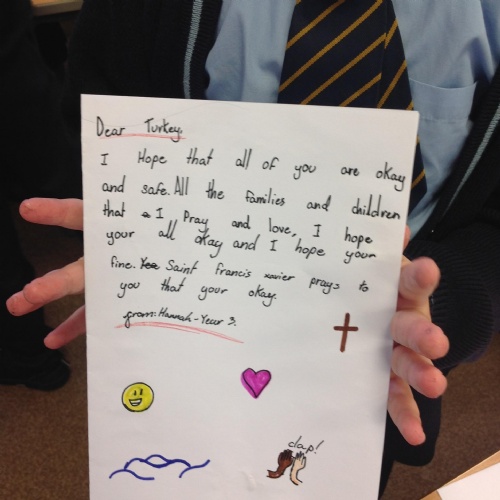 Dear Turkey,
I Hope that all of you are okay
and safe. All the families and children
that a I Pray and love, I hope
your all okay and I hope your
fine. Yea Saint francis xavier prays to
you that your okay.
from: Hannah - Year 3.
clap!